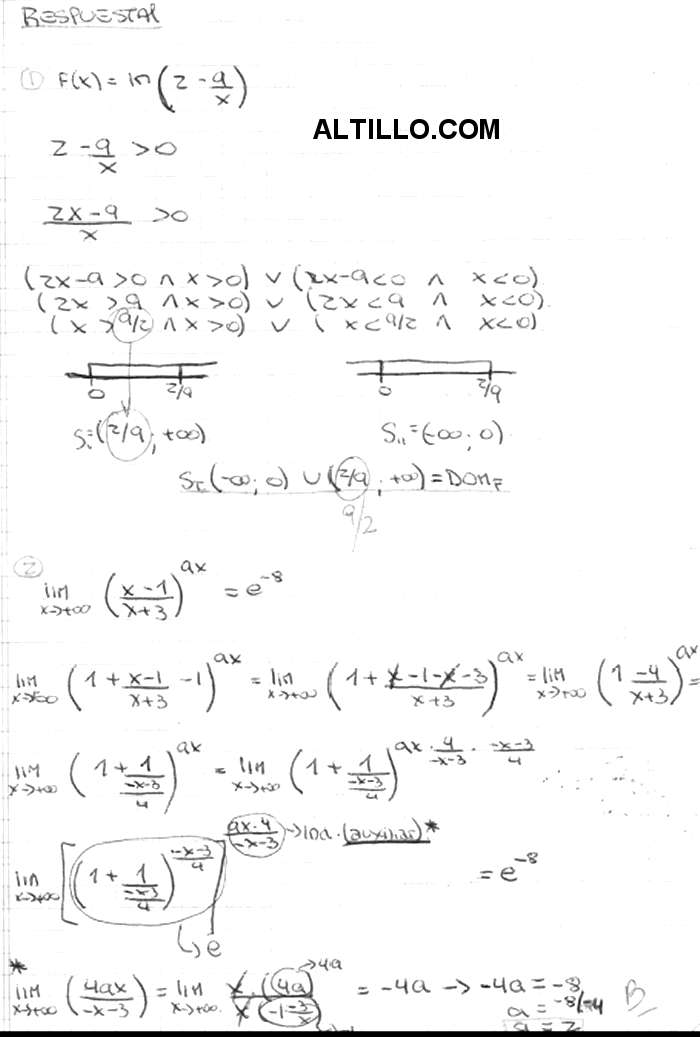 RESPUESTAS
① F(x) = ln(2 - 9/x)
ALTILLO.COM
2 - 9/x > 0
(2x-9)/x > 0
(2x-9>0 ∧ x>0) ∨ (2x-9<0 ∧ x<0)
(2x>9 ∧ x>0) ∨ (2x<9 ∧ x<0)
(x>9/2 ∧ x>0) ∨ (x<9/2 ∧ x<0)
0 2/9 0 2/9
Sı=(2/9; +∞) Sıı=(-∞; 0)
S_T (-∞; 0) ∪ (2/9; +∞) = DOM F
9/2
②
lim x→+∞ ((x-1)/(x+3))^ax = e^-8
lim x→+∞ (1 + (x-1)/(x+3) - 1)^ax = lim x→+∞ (1 + (x-1-x-3)/(x+3))^ax = lim x→+∞ (1 -4/(x+3))^ax =
lim x→+∞ (1 + 1/((-x-3)/4))^ax = lim x→+∞ (1 + 1/((-x-3)/4))^(ax · 4/(-x-3) · (-x-3)/4)
lim x→+∞ [(1 + 1/((-x-3)/4))^((-x-3)/4)]^((ax·4)/(-x-3)) → (auxiliar)* = e^-8
↳ e
*
lim x→+∞ (4ax/(-x-3)) = lim x→+∞ x·(4a)/x(-1-3/x) → 4a = -4a → -4a = -8 B
a = -8/-4
a = 2